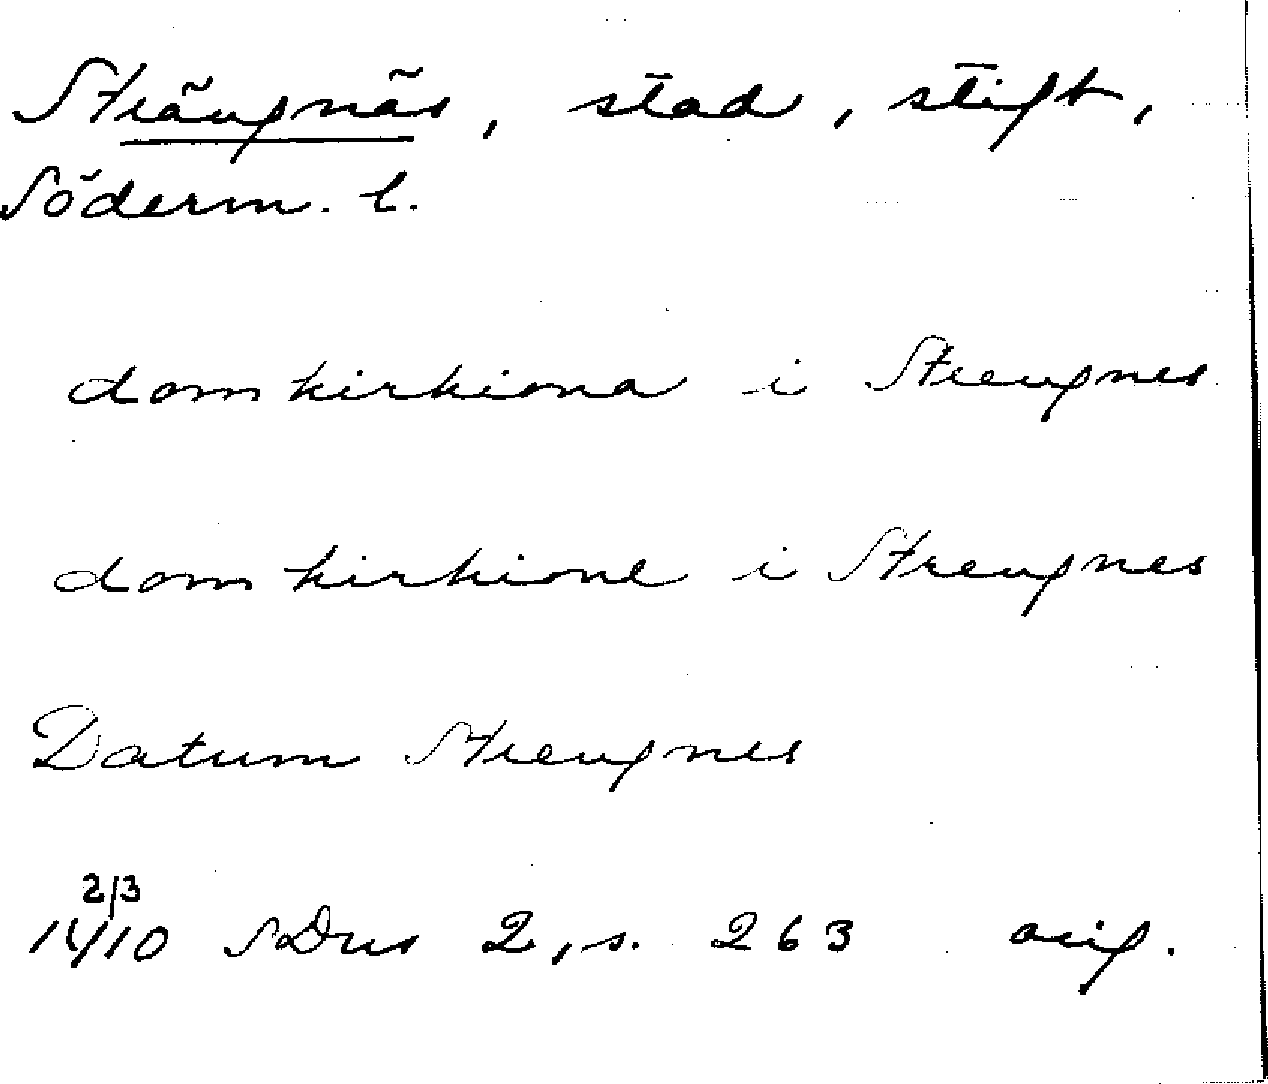 Strängnäs, stad, stift,
Söderm. l.
domkirkiona i Strengnes
domkirkione i Strengnes
Datum Strengnes
2/3
1410 SDns 2, s. 263 orig.